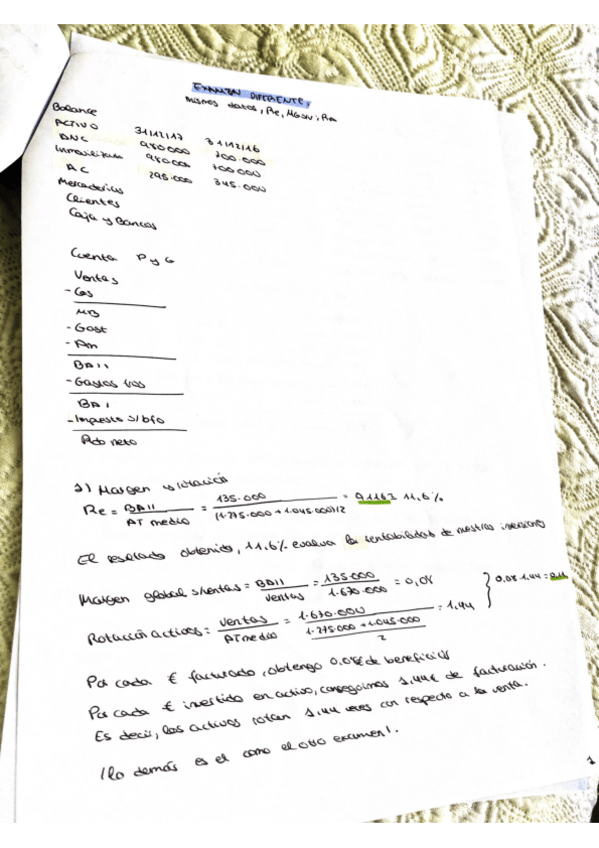 EXAMEN DIFERENTE,
mismos datos, Re, MGsv; Ra
Balance
ACTIVO 31/12/17 31/12/16
ANC 980.000 700.000
Inmovilizado 980.000 700.000
AC 295.000 345.000
Mercaderías
Clientes
Caja y Bancos
Cuenta P y G
Ventas
- Cos
MB
- Gast
- Am
BAII
- Gastos fros
BAI
- Impuesto s/bfo
Rdo neto
2) Margen y rotación
Re = BAII / AT medio = 135.000 / (1.275.000 + 1.045.000)/2 = 0,1163 11,6%
El resultado obtenido, 11,6% evalua la rentabilidad de nuestras inversiones
Margen global s/ventas = BAII / ventas = 135.000 / 1.670.000 = 0,08
Rotación activos = ventas / AT medio = 1.670.000 / (1.275.000 + 1.045.000 / 2) = 1,44 } 0,08 · 1,44 = 0,11
Por cada € facturado, obtengo 0,08€ de beneficios
Por cada € invertido en activo, conseguimos 1,44€ de facturación.
Es decir, los activos rotan 1,44 veces con respecto a la venta.
¡lo demás es el como el otro examen!.
1